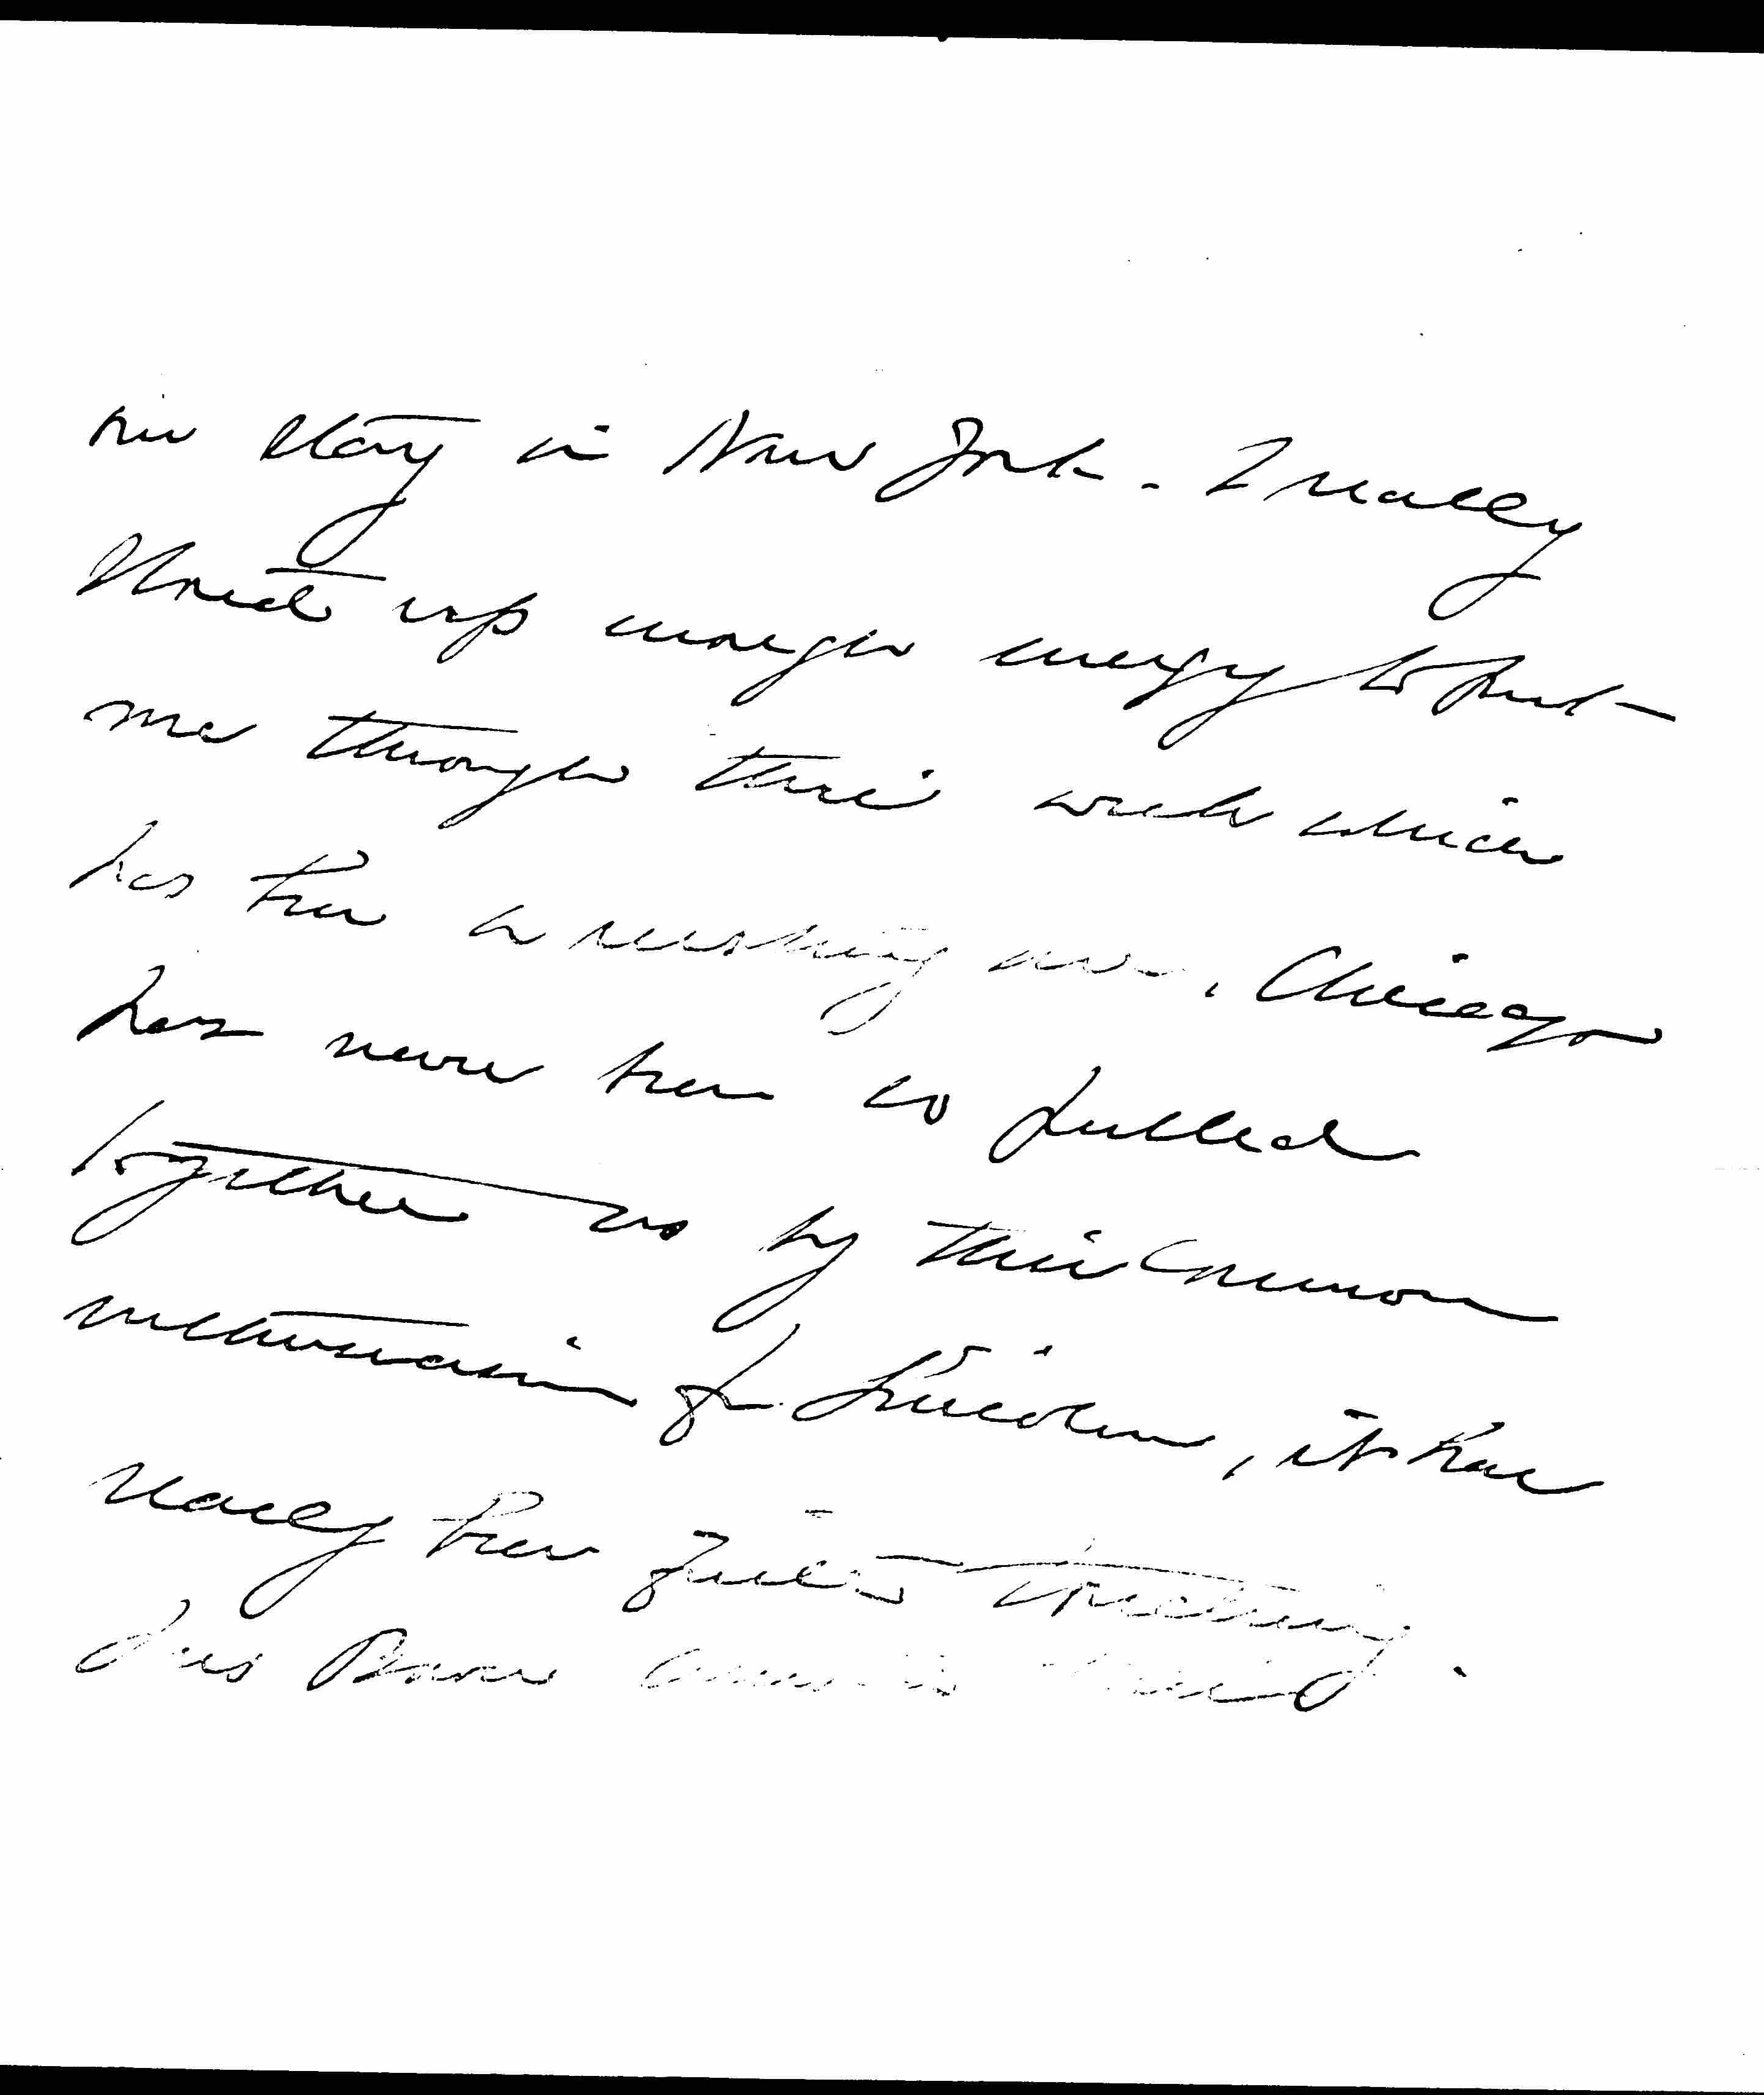 our stay in New York. I really
stored up enough energy to put
me through this week which
has been a rushing one. Chicago
has never been so pulled
together as by this common
enthusiasm for Lincoln, it has
really been quite touching.
Miss